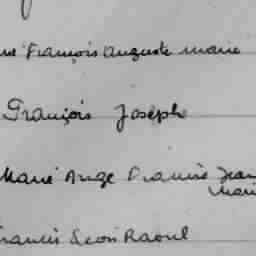 François Auguste Marie
François Joseph
Marie Ange Francis Jean
Marie
Francis Léon Raoul